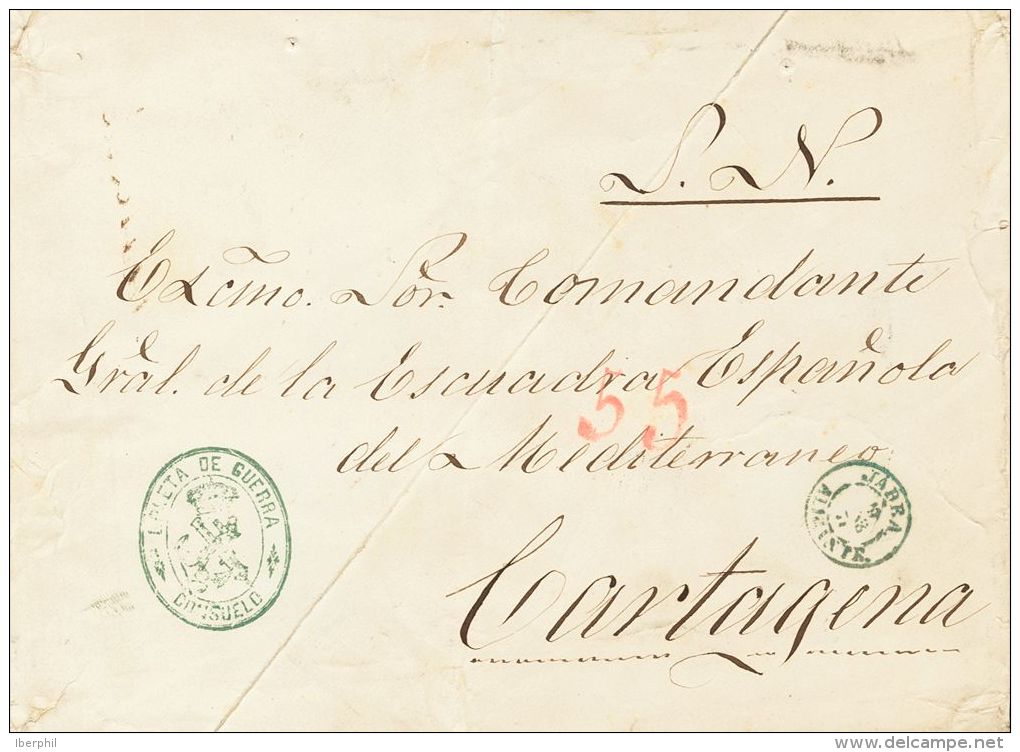 S. N.
Excmo. Sor. Comandante
Gral. de la Escuadra Española
55
del Mediterraneo
LORETA DE GUERRA
CONSUELO
JABEA.
ALICANTE.
Cartagena
Iberphil
delcampe.net